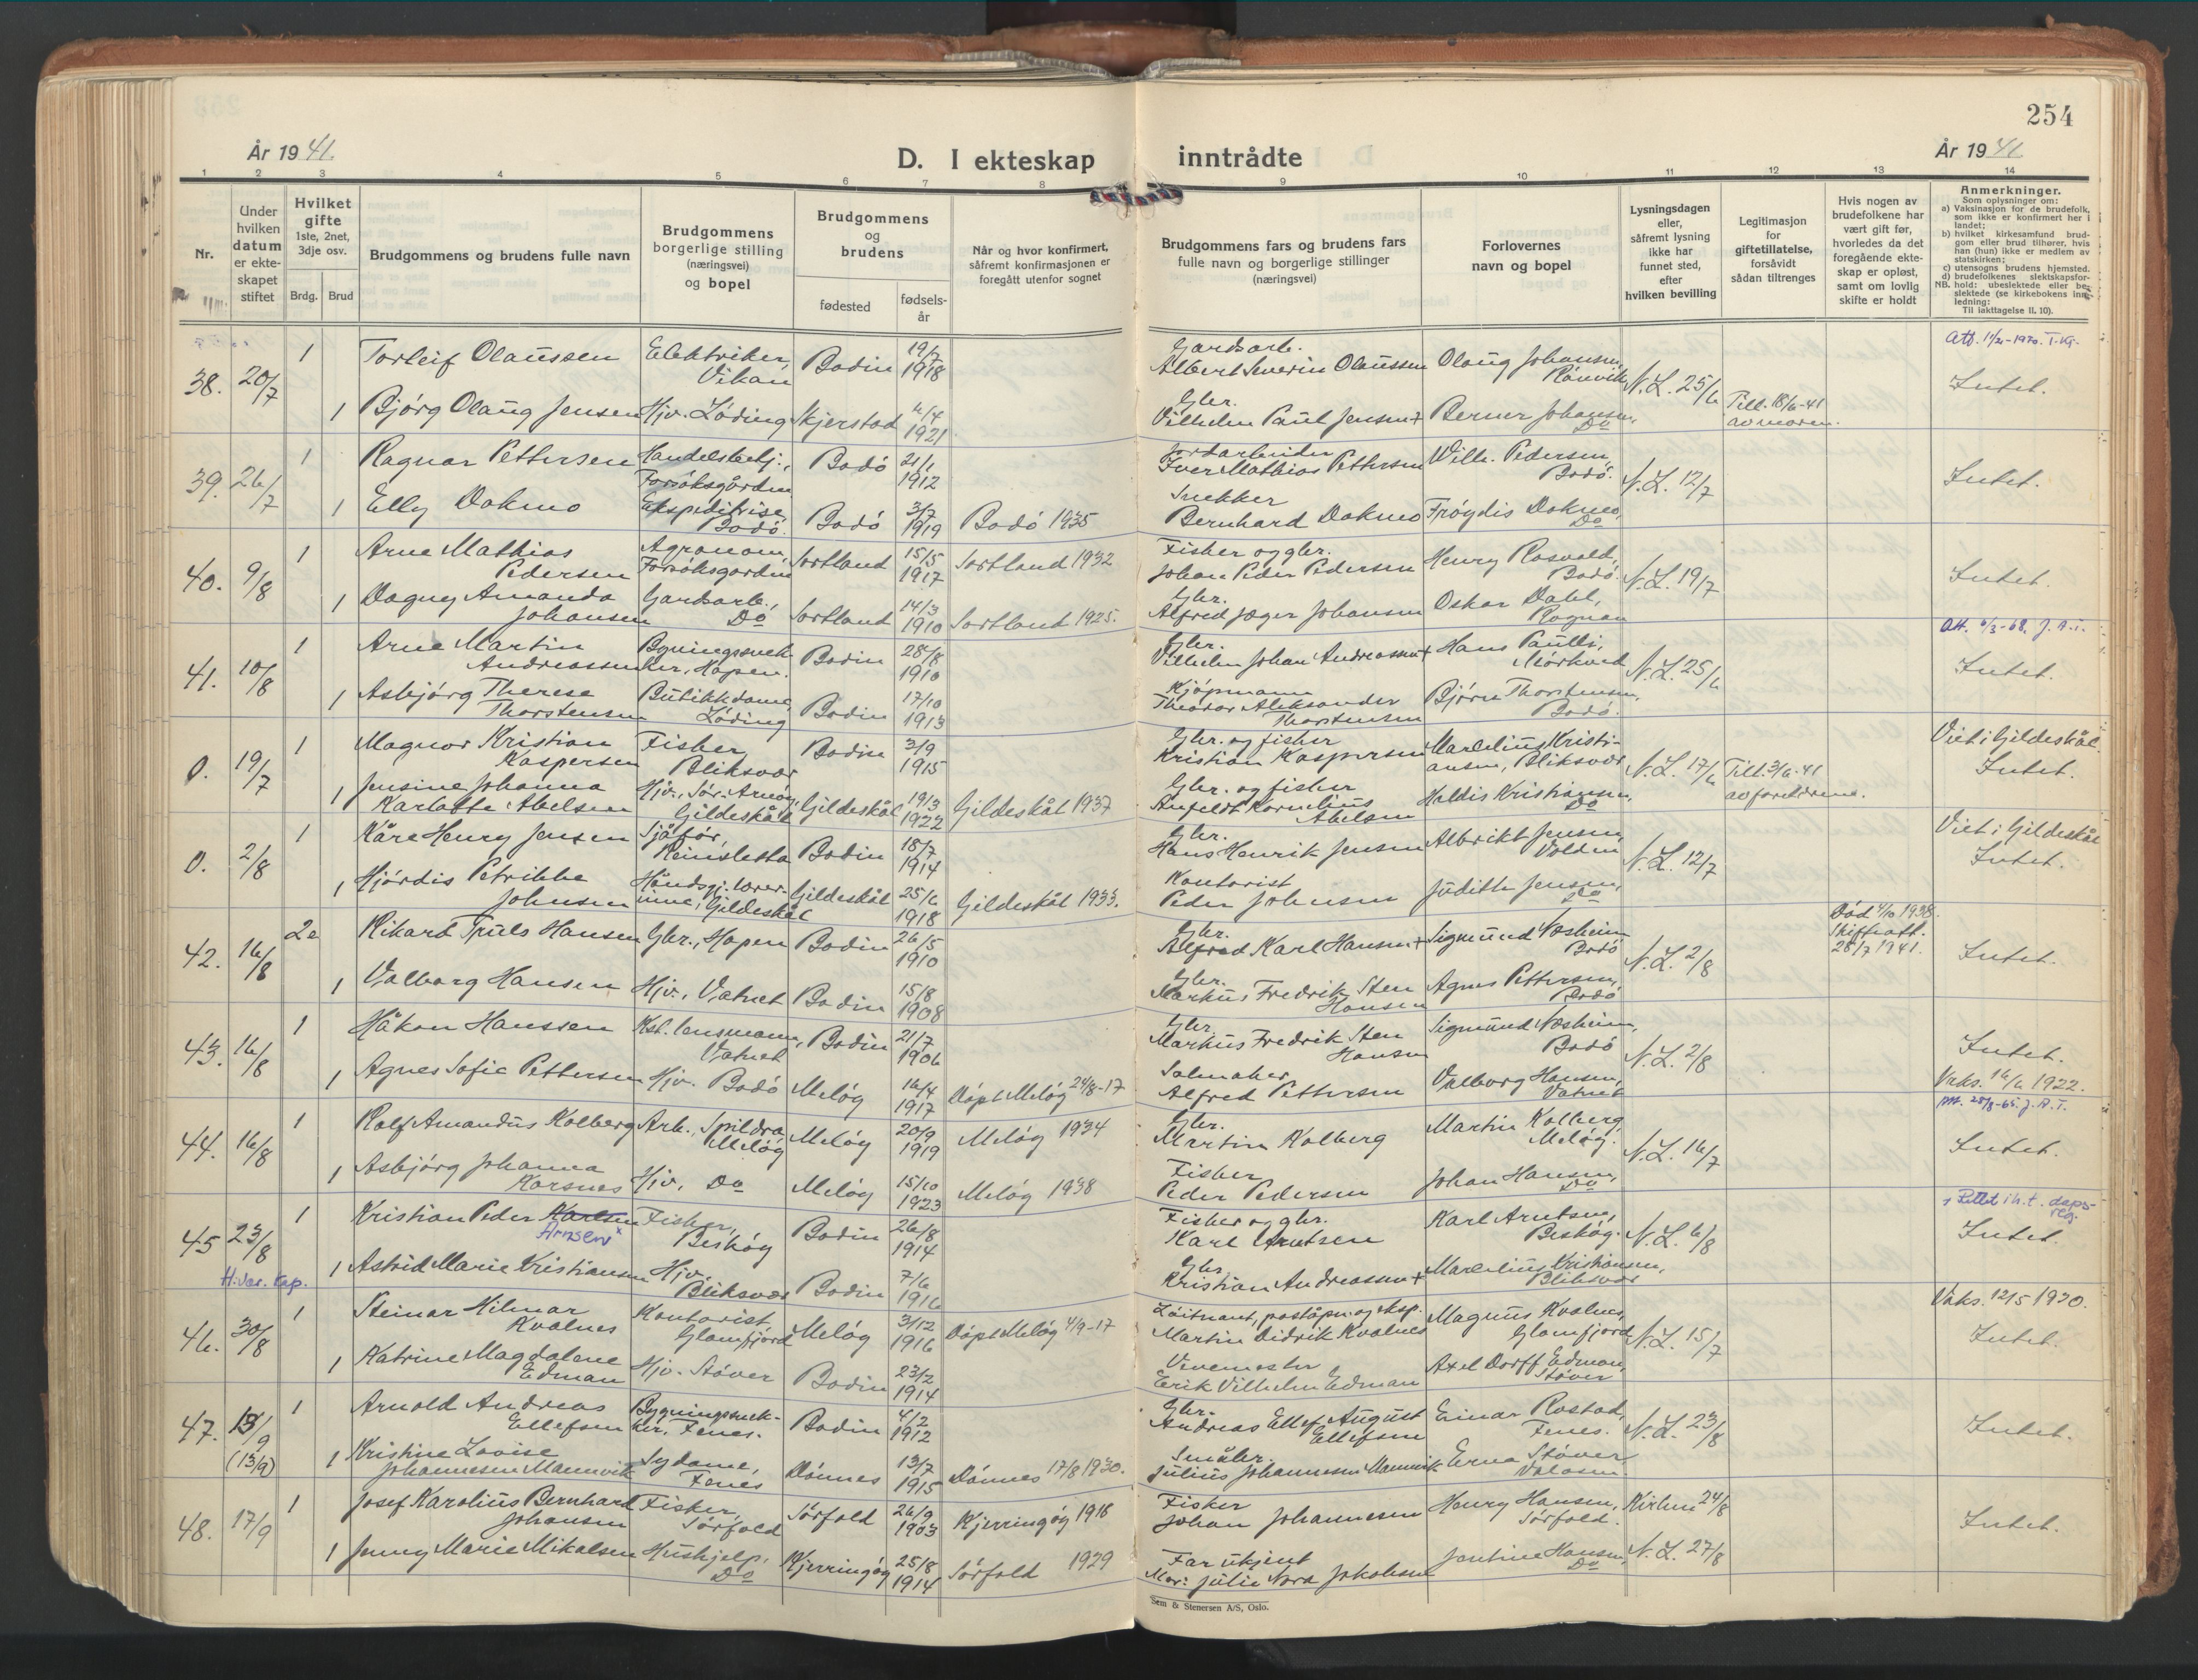 254
År 1941.
D. I ekteskap inntrådte
År 1941
1 2 3 4 5 6 7 8 9 10 11 12 13 14
Nr.
Under hvilken datum er ekteskapet stiftet
Hvilket gifte
1ste, 2net, 3dje osv.
Brdg. Brud
Brudgommens og brudens fulle navn
Brudgommens borgerlige stilling (næringsvei) og bopel
Brudgommens og brudens
fødested
fødselsår
Når og hvor konfirmert, såfremt konfirmasjonen er foregått utenfor sognet
Brudgommens fars og brudens fars fulle navn og borgerlige stillinger (næringsvei)
Forlovernes navn og bopel
Lysningsdagen eller, såfremt lysning ikke har funnet sted, efter hvilken bevilling
Legitimasjon for giftetillatelse, forsåvidt sådan tiltrenges
Hvis nogen av brudefolkene har vært gift før, hvorledes da det foregående ekteskap er opløst, samt om lovlig skifte er holdt
Anmerkninger.
Som oplysninger om:
a) Vaksinasjon for de brudefolk, som ikke er konfirmert her i landet;
b) hvilket kirkesamfund brudgom eller brud tilhører, hvis han (hun) ikke er medlem av statskirken;
c) utensogns brudens hjemsted.
d) brudefolkenes slektskapsforhold: ubeslektede eller beslektede (se kirkebokens innledning:
NB.
Til iakttagelse II. 10).
38. 20/7 1 Torleif Olaussen Elektriker, Vikan Bodin 19/7 1918 Gardsarb. Albert Severin Olaussen Olaug Johansen, Rönvik N.L. 25/6 Intet.
1 Bjørg Olaug Jensen Hjv. Løding Skjerstad 4/4 1921 Gbr. Vilhelm Paul Jensen + Berner Johansen, Do Till. 18/6-41 av moren.
39. 26/7 1 Ragnar Pettersen Handelsbetj., Forsøksgården Bodø 21/1 1912 Jordarbeider Iver Mathias Pettersen Wilh. Pedersen, Bodø. N.L. 12/7 Intet.
1 Elly Dokmo Ekspeditrise, Bodø. Bodø 3/7 1919 Bodø 1935 Snekker Bernhard Dokmo Frøydis Dokmo, Do
40. 9/8 1 Arne Mathias Pedersen Agronom, Forsøksgården Sortland 15/5 1917 Sortland 1932 Fisker og gbr. Johan Peder Pedersen Henry Rosvold, Bodø. N.L. 19/7 Intet.
1 Dagny Amanda Johansen Gardsarb., Do Sortland 14/3 1910 Sortland 1925. Gbr. Alfred Jæger Johansen Oskar Dahl, Rognan
41. 10/8 1 Arne Martin Andreassen Bygningssnekker, Hopen. Bodin 28/8 1910 Gbr. Vilhelm Johan Andreassen + Hans Paulli, Mørkved N.L. 25/6 Att. 6/3-68. J.A.T. Intet.
1 Asbjørg Therese Thorstensen Butikkdame, Løding Bodin 17/10 1913 Kjøpmann Theodor Aleksander Thorstensen Bjørn Thorstensen, Bodø.
0. 19/7 1 Magnor Kristian Kaspersen Fisker, Bliksvær Bodin 3/9 1915 Gbr. og fisker Kristian Kaspersen Marelius Kristiansen, Bliksvær N.L. 17/6 Till. 3/6-41 av foreldrene. Viet i Gildeskål. Intet.
1 Jensine Johanna Karlotte Abelsen Hjv., Sør-Arnøy, Gildeskål Gildeskål 19/3 1922 Gildeskål 1937 Gbr. og fisker Anfeldt Kornelius Abelsen Haldis Kristiansen, Do
0. 2/8 1 Kåre Henry Jensen Sjåfør, Keiseletta Bodin 18/7 1914 Gbr. Hans Henrik Jensen Albrikt Jensen, Volden N.L. 12/7 Viet i Gildeskål Intet.
1 Hjørdis Petrikke Johnsen Håndgj. lærerinne, Gildeskål Gildeskål 25/6 1918 Gildeskål 1933. Kontorist Peder Johnsen Judith Jensen, Do
42. 16/8 2e Rikard Truls Hansen Gbr., Hopen Bodin 26/5 1910 Gbr. Alfred Karl Hansen + Sigmund Næsheim Bodø N.L. 2/8 Død 4/10 1938. Skifteatt. 28/7 1941. Intet.
1 Valborg Hansen Hjv., Vatnet Bodin 15/8 1908 Gbr. Markus Fredrik Sten Hansen Agnes Pettersen, Bodø
43. 16/8 1 Håkon Hanssen Kst. lensmann, Vatnet Bodin 21/7 1906 Gbr. Markus Fredrik Sten Hansen Sigmund Næsheim, Bodø N.L. 2/8 Intet.
1 Agnes Sofie Pettersen Hjv. Bodø Meløy 16/4 1917 Døpt Meløy 24/8-17 Salmaker Alfred Pettersen Valborg Hansen, Vatnet Vaks. 16/6 1922.
44. 16/8 1 Rolf Amandus Kolberg Arb., Spildra Meløy Meløy 20/9 1919 Meløy 1934 Gbr. Martin Kolberg Martin Kolberg, Meløy. N.L. 16/7 Intet.
1 Asbjørg Johanna Korsnes Hjv. Do Meløy 15/10 1923 Meløy 1938 Fisker Peder Pedersen Johan Hansen, Do
45 23/8 1 Kristian Peder Karlsen Arnsen x Fisker, Beskøy Bodin 26/8 1914 Fisker og gbr. Karl Arntsen Karl Arntsen, Beskøy. N.L. 6/8 x Rettet i h.t. dåpsreg. Intet.
H.vær. kap. 1 Astrid Marie Kristiansen Hjv. Bliksvær Bodin 7/6 1916 Gbr. Kristian Andreassen + Marelius Kristiansen, Bliksvær
46. 30/8 1 Steinar Hilmar Kvalnes Kontorist, Glomfjord Meløy 3/12 1916 Døpt Meløy 4/9-17 Løitnant, poståpn. og eksp. Martin Didrik Kvalnes Magnus Kvalnes, Glomfjord N.L. 15/7 Vaks. 12/5 1930. Intet.
1 Katrine Magdalene Edman Hjv. Støver Bodin 23/2 1914 Erik Vilhelm Edman Axel Dorff Edman, Støver
47. 13/9 (13/9) 1 Arnold Andreas Ellefsen Bygningssnekker, Fenes. Bodin 4/2 1912 Gbr. Andreas Ellef August Ellefsen Einar Rostad, Fenes. N.L. 23/8 Intet.
1 Kristine Lovise Johannesen Mannvik Sydame, Fenes Dønnes 13/7 1915 Dønnes 17/8 1930. Småbr. Julius Johannesen Mannvik Erna Støver
48. 17/9 1 Josef Karolius Bernhard Johansen Fisker, Sørfold Sørfold 26/9 1903 Kjerringøy 1918 Fisker Johan Johannesen Henry Hansen, Sørfold. Kirken 24/8 Intet.
1 Jenny Marie Mikalsen Hushjelp, Do Kjerringøy 25/8 1914 Sørfold 1929 Far ukjent Mor: Julie Nora Jakobsen Jentine Hansen, Do N.L. 27/8
Sem & Stenersen A/S, Oslo.